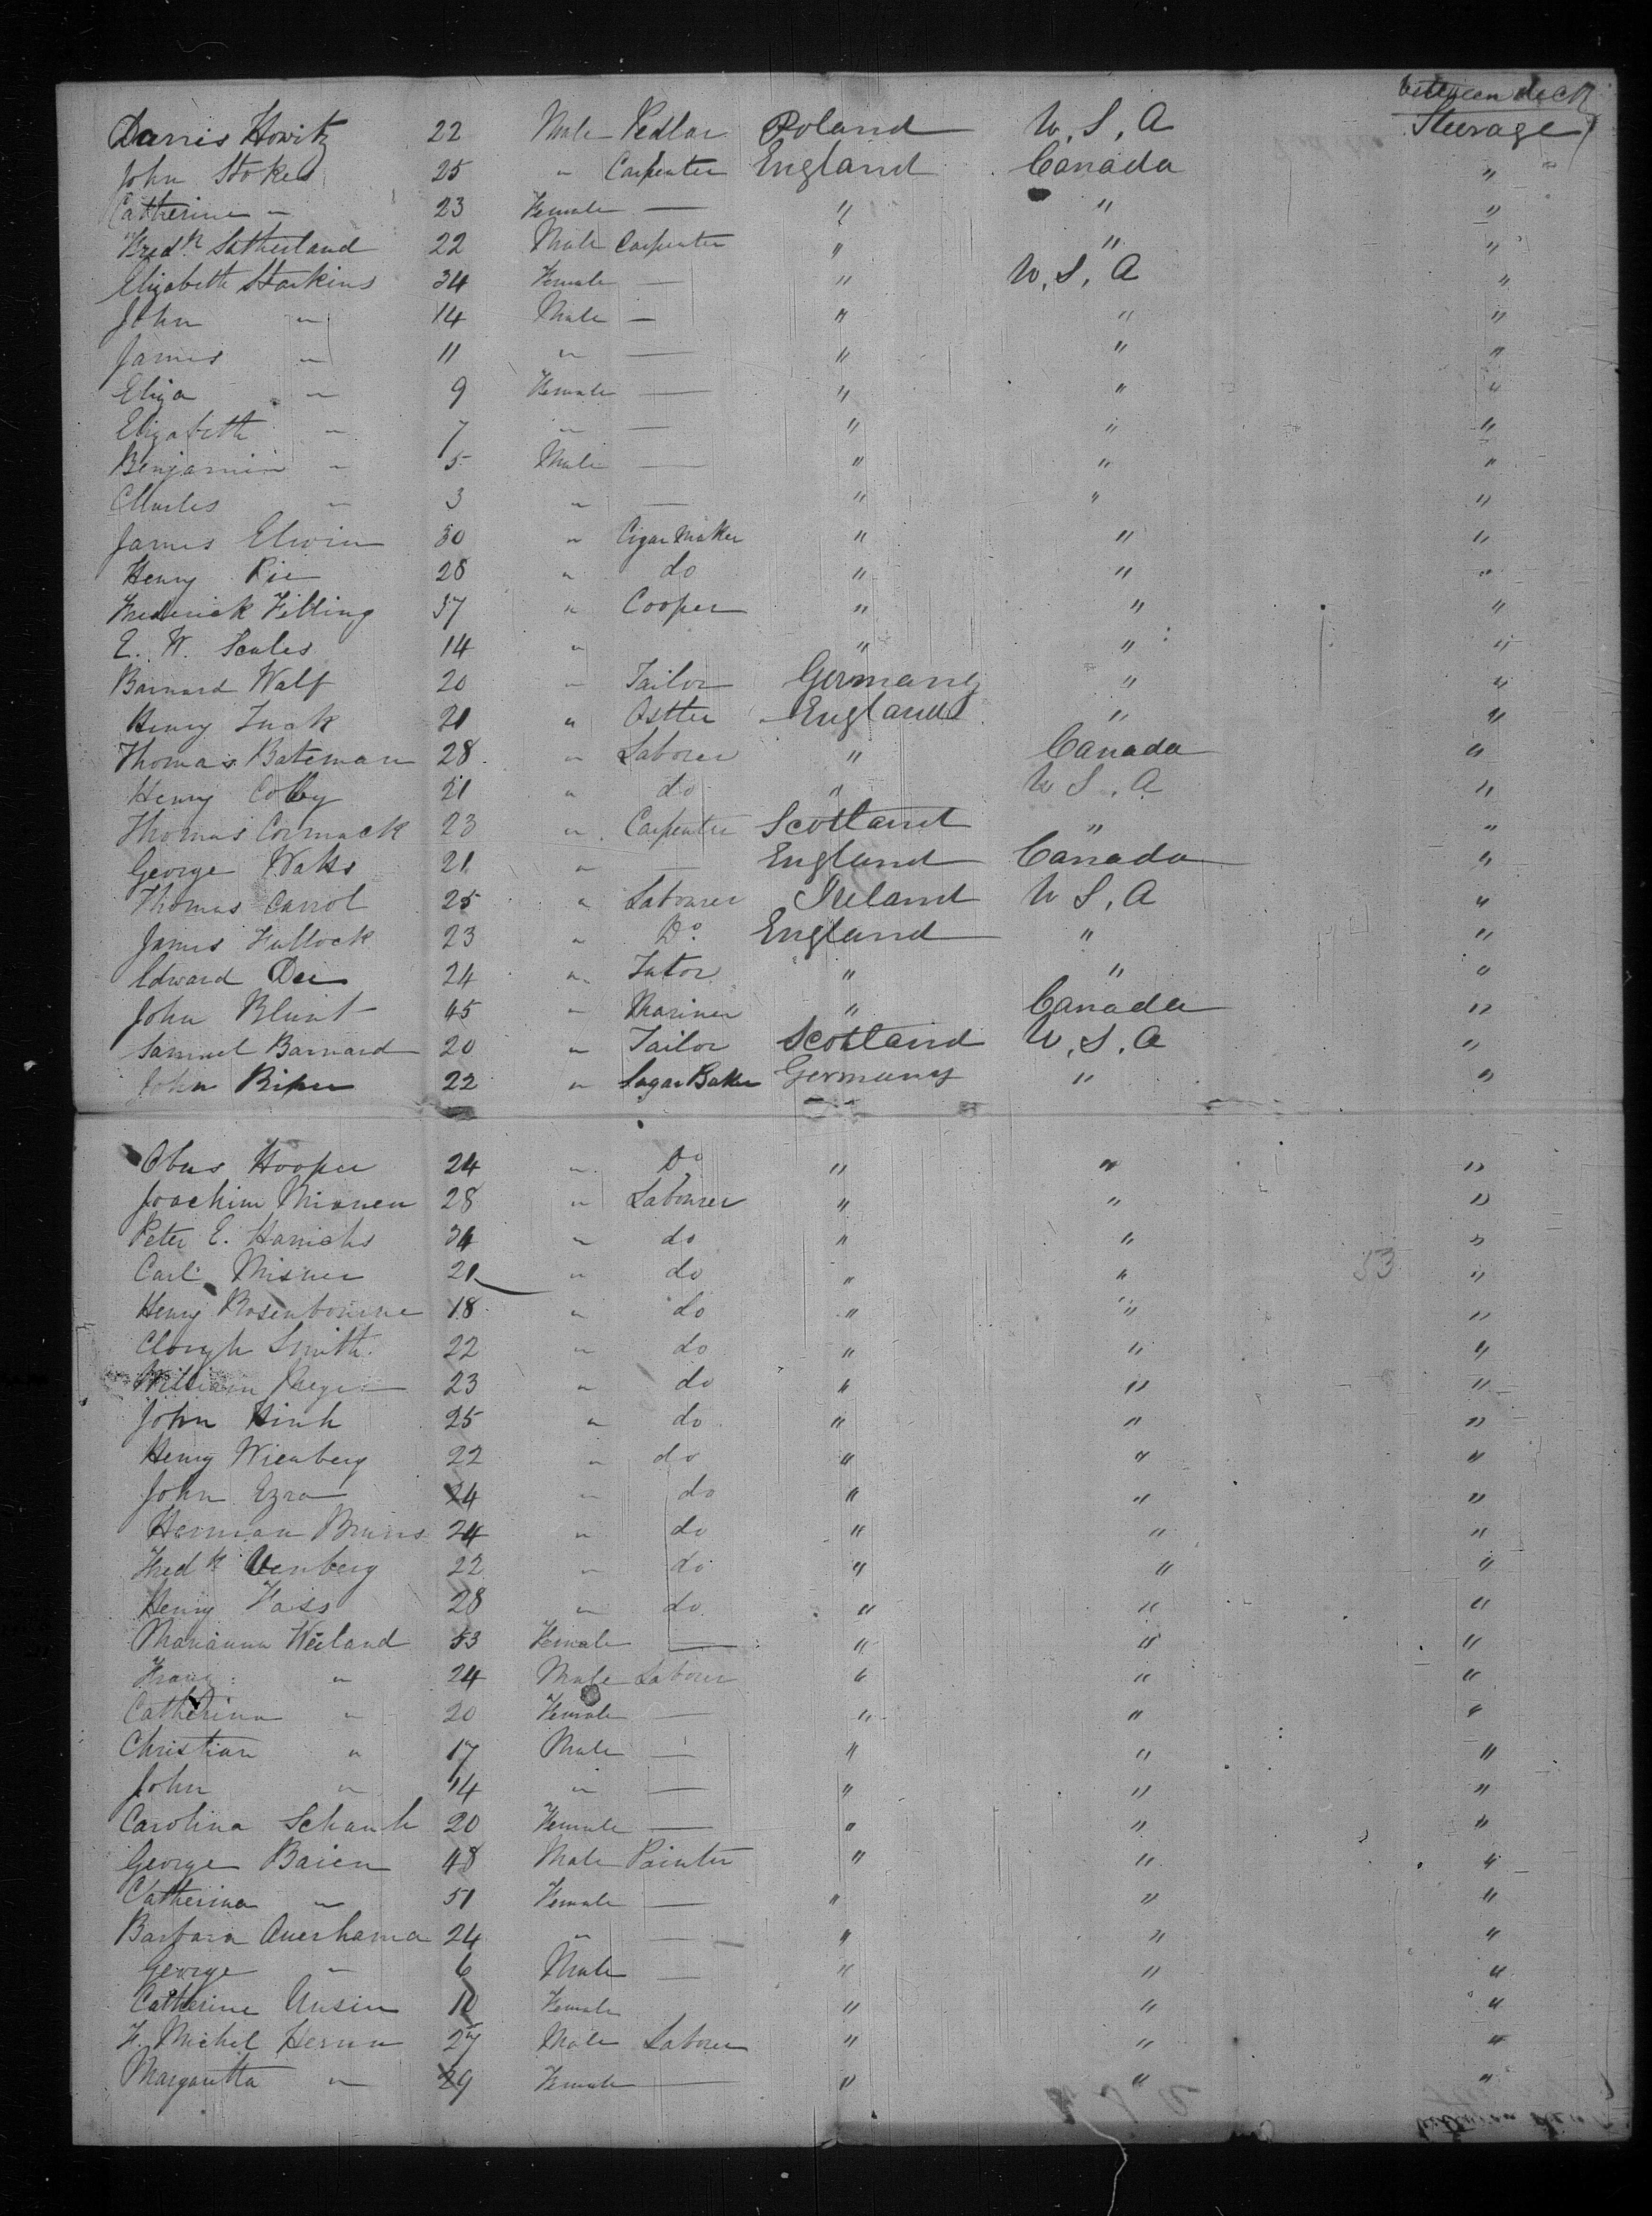 between deck
Darris Howitz 22 Male Pedlar Poland U. S. A Steerage
John Stokes 25 " Carpenter England Canada "
Catherine " 23 Female — " " "
Fredk Sutherland 22 Male Carpenter " " "
Elizabeth Starkins 34 Female — " U. S. A "
John " 14 Male — " " "
James " 11 " — " " "
Eliza " 9 Female — " " "
Elizabeth " 7 " — " " "
Benjamin " 5 Male — " " "
Charles " 3 " — " " "
James Elwin 30 " Cigar Maker " " "
Henry Pie 28 " do " " "
Frederick Filling 37 " Cooper " " "
E. W. Scales 14 " " " "
Barnard Walf 20 " Tailor Germany " "
Henry Tuck 21 " Ostler England " "
Thomas Bateman 28 " Laborer " Canada "
Henry Colby 21 " do " U S. A "
Thomas Cormack 23 " Carpenter Scotland " "
George Watts 21 " — England Canada "
Thomas Carrol 25 " Labourer Ireland U S. A "
James Hullock 23 " Do England " "
Edward Dee 24 " Tutor " " "
John Blunt 45 " Mariner " Canada "
Samuel Barnard 20 " Tailor Scotland U. S. A "
John Riper 22 " Sugar Baker Germany " "
Hooper 24 " Do " " "
Joachim 28 " Labourer " " "
Peter E. Harrichs 24 " do " " "
Carl Misner 21 " do " " 53 "
Henry Rosenbourne 18 " do " " "
Clough Smith 22 " do " " "
William Meyer 23 " do " " "
John Hink 25 " do " " "
Henry Wienberg 22 " do " " "
John Ezra 24 " do " " "
Herman Bruns 24 " do " " "
Fredk Uenberg 22 " do " " "
Henry Hass 28 " do " " "
Marianna Weiland 53 Female — " " "
Franz " 24 Male Laborer " " "
Catherina " 20 Female — " " "
Christian " 17 Male — " " "
John " 14 " — " " "
Carolina Schaub 20 Female — " " "
George Baien 48 Male Painter " " "
Catherina " 51 Female — " " "
Barbara Auerhama 24 " — " " "
George " 6 Male — " " "
Catherine Unsin 10 Female " " "
F. Michel Herrn 27 Male Laborer " " "
Margaretta " 29 Female — " " "